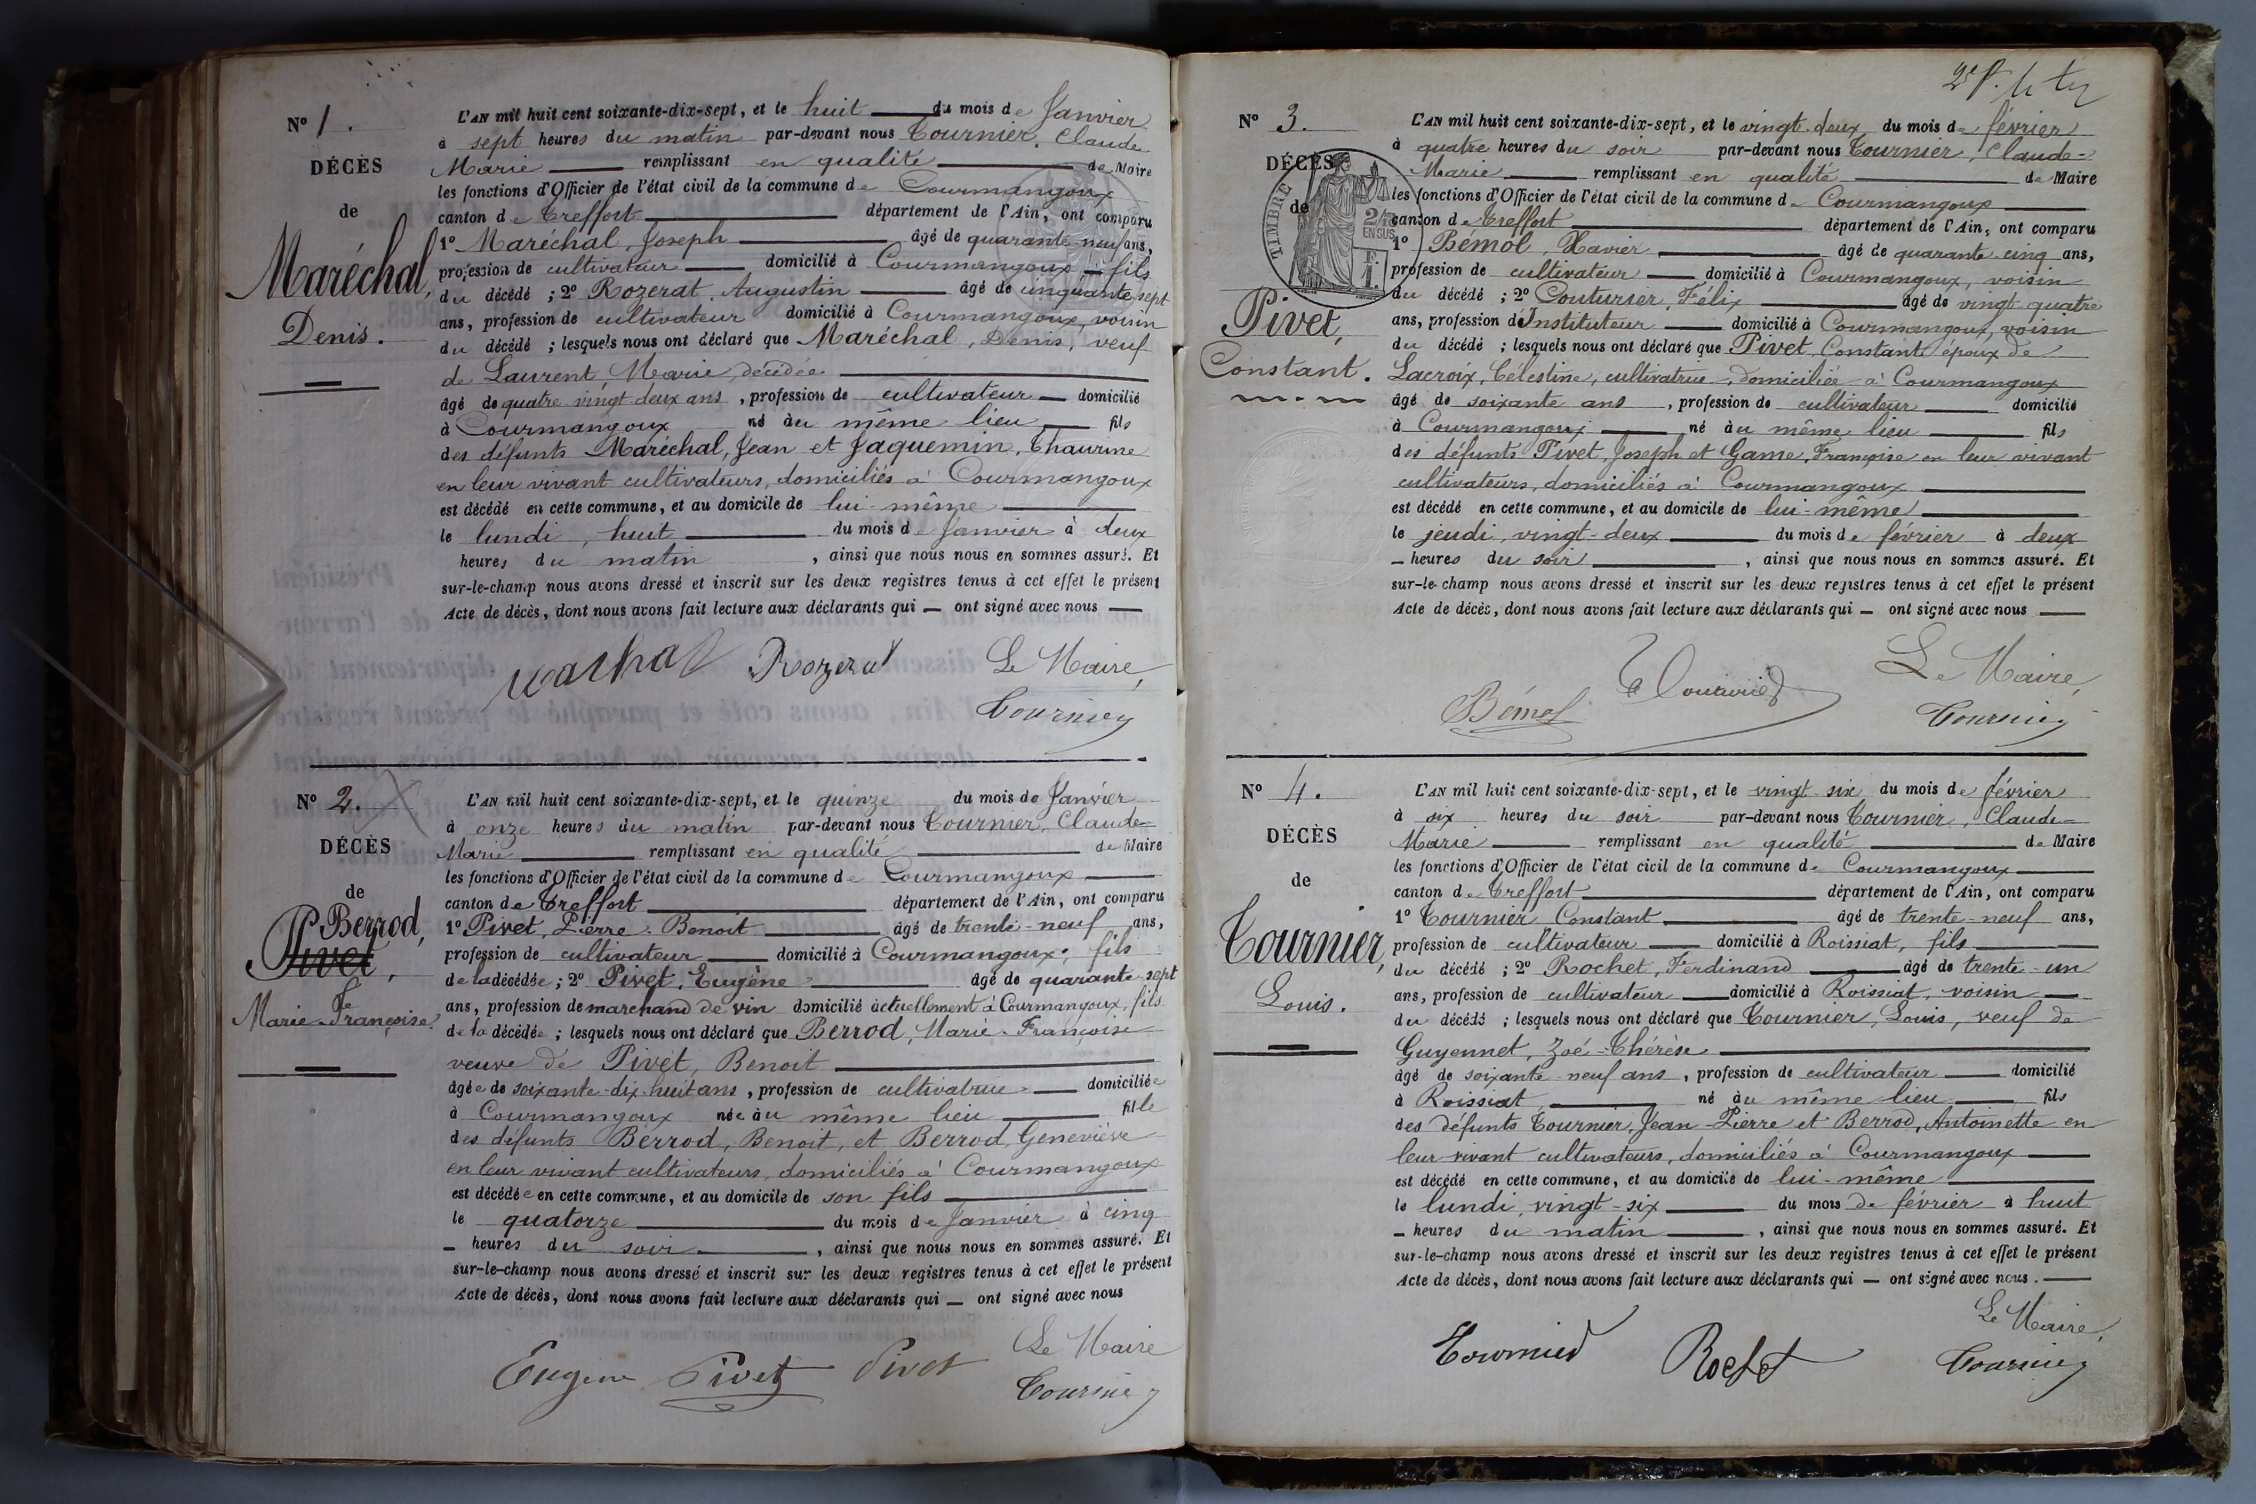 N° 1.
DÉCÈS
de
Maréchal,
Denis.
L'AN mil huit cent soixante-dix-sept, et le huit du mois de Janvier
à sept heures du matin par-devant nous Tournier, Claude
Marie remplissant en qualité de Maire
les fonctions d'Officier de l'état civil de la commune de Courmangoux
canton de Treffort département de l'Ain, ont comparu
1° Maréchal, Joseph âgé de quarante neuf ans,
profession de cultivateur domicilié à Courmangoux fils
du décédé ; 2° Rozerat, Augustin âgé de cinquante sept
ans, profession de cultivateur domicilié à Courmangoux, voisin
du décédé ; lesquels nous ont déclaré que Maréchal, Denis, veuf
de Laurent, Marie, décédée
âgé de quatre vingt deux ans, profession de cultivateur domicilié
à Courmangoux né au même lieu fils
des défunts Maréchal, Jean et Jaquemin, Thaurine
en leur vivant cultivateurs, domiciliés à Courmangoux
est décédé en cette commune, et au domicile de lui-même
le lundi, huit du mois de Janvier à deux
heures du matin, ainsi que nous nous en sommes assuré. Et
sur-le-champ nous avons dressé et inscrit sur les deux registres tenus à cet effet le présent
Acte de décès, dont nous avons fait lecture aux déclarants qui — ont signé avec nous
Rozerat Le Maire,
Tournier
N° 2.
DÉCÈS
de
Berrod,
Pivet,
Marie-Fçe
Françoise
L'AN mil huit cent soixante-dix-sept, et le quinze du mois de Janvier
à onze heures du matin par-devant nous Tournier, Claude-
Marie remplissant en qualité de Maire
les fonctions d'Officier de l'état civil de la commune de Courmangoux
canton de Treffort département de l'Ain, ont comparu
1° Pivet, Pierre-Benoit âgé de trente-neuf ans,
profession de cultivateur domicilié à Courmangoux, fils
de la décédée ; 2° Pivet, Eugène âgé de quarante-sept
ans, profession de marchand de vin domicilié actuellement à Courmangoux, fils
de la décédée ; lesquels nous ont déclaré que Berrod, Marie-Françoise
veuve de Pivet, Benoit
âgée de soixante-dix-huit ans, profession de cultivatrice domiciliée
à Courmangoux née au même lieu fille
des défunts Berrod, Benoit, et Berrod, Geneviève
en leur vivant cultivateurs, domiciliés à Courmangoux
est décédée en cette commune, et au domicile de son fils
le quatorze du mois de Janvier à cinq
heures du soir, ainsi que nous nous en sommes assuré. Et
sur-le-champ nous avons dressé et inscrit sur les deux registres tenus à cet effet le présent
Acte de décès, dont nous avons fait lecture aux déclarants qui — ont signé avec nous
Le Maire
Eugène Pivet Pivet Tournier
N° 3.
DÉCÈS
de
TIMBRE
Pivet,
Constant.
L'AN mil huit cent soixante-dix-sept, et le vingt-deux du mois de février
à quatre heures du soir par-devant nous Tournier, Claude-
Marie remplissant en qualité de Maire
les fonctions d'Officier de l'état civil de la commune de Courmangoux
canton de Treffort département de l'Ain, ont comparu
1° Bémol, Xavier âgé de quarante cinq ans,
profession de cultivateur domicilié à Courmangoux, voisin
du décédé ; 2° Couturier, Félix âgé de vingt-quatre
ans, profession d'Instituteur domicilié à Courmangoux, voisin
du décédé ; lesquels nous ont déclaré que Pivet, Constant, époux de
Lacroix, Célestine, cultivatrice, domiciliée à Courmangoux
âgé de soixante ans, profession de cultivateur domicilié
à Courmangoux né au même lieu fils
des défunts Pivet, Joseph et Game, Françoise en leur vivant
cultivateurs, domiciliés à Courmangoux
est décédé en cette commune, et au domicile de lui-même
le jeudi, vingt-deux du mois de février à deux
heures du soir, ainsi que nous nous en sommes assuré. Et
sur-le-champ nous avons dressé et inscrit sur les deux registres tenus à cet effet le présent
Acte de décès, dont nous avons fait lecture aux déclarants qui — ont signé avec nous
Le Maire,
Bémol Couturier Tournier
N° 4.
DÉCÈS
de
Tournier,
Louis.
L'AN mil huit cent soixante-dix-sept, et le vingt-six du mois de février
à six heures du soir par-devant nous Tournier, Claude-
Marie remplissant en qualité de Maire
les fonctions d'Officier de l'état civil de la commune de Courmangoux
canton de Treffort département de l'Ain, ont comparu
1° Tournier Constant âgé de trente-neuf ans,
profession de cultivateur domicilié à Roissiat, fils
du décédé ; 2° Rochet, Ferdinand âgé de trente-un
ans, profession de cultivateur domicilié à Roissiat, voisin
du décédé ; lesquels nous ont déclaré que Tournier, Louis, veuf de
Guyennet, Zoé-Thérèse
âgé de soixante-neuf ans, profession de cultivateur domicilié
à Roissiat né au même lieu fils
des défunts Tournier, Jean-Pierre et Berrod, Antoinette en
leur vivant cultivateurs, domiciliés à Courmangoux
est décédé en cette commune, et au domicile de lui-même
le lundi, vingt-six du mois de février à huit
heures du matin, ainsi que nous nous en sommes assuré. Et
sur-le-champ nous avons dressé et inscrit sur les deux registres tenus à cet effet le présent
Acte de décès, dont nous avons fait lecture aux déclarants qui — ont signé avec nous.
Le Maire,
Tournier Rochet Tournier